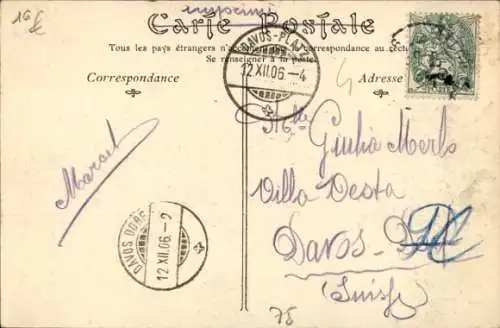 16
imprimé
Carte Postale
Tous les pays étrangers n'acceptent la correspondance au
Se renseigner à la poste
Correspondance
Adresse
DAVOS-PLATZ
12.XII.06.-4
Marcel
Mlle Giulia Merlo
Villa Vesta
Davos-
(Suisse)
DAVOS DORF
12.XII.06.-2
75